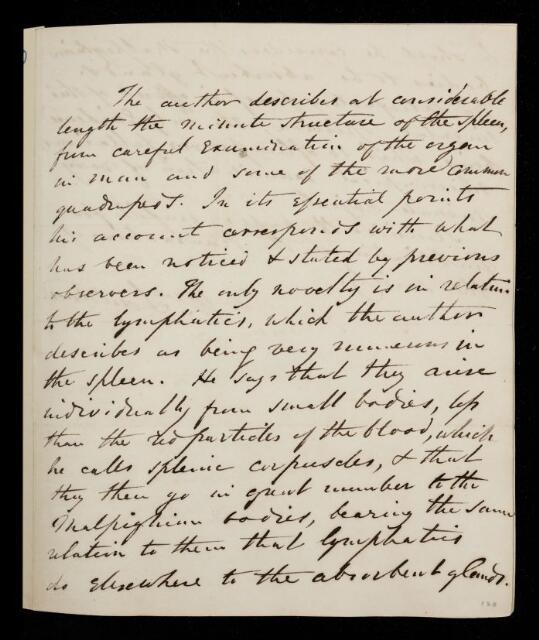 The author describes at considerable
length the minute structure of the spleen,
from careful examination of the organ
in man and some of the more common
quadrupeds. In its essential points
his account corresponds with what
has been noticed & stated by previous
observers. The only novelty is in relation
to the lymphatics, which the author
describes as being very numerous in
the spleen. He says that they arise
individually from small bodies, less
than the red particles of the blood, which
he calls splenic corpuscles, & that
they then go in great number to the
Malpighian bodies, bearing the same
relation to them that lymphatics
do elsewhere to the absorbent glands.